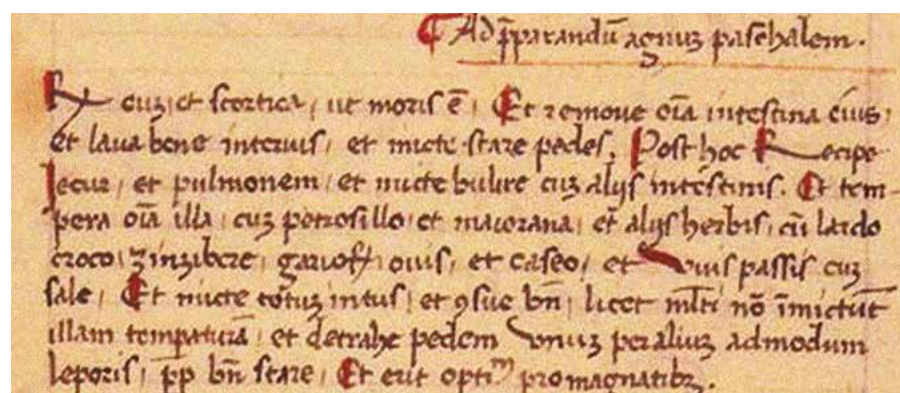 Ad p̄parandū agnuʒ paschalem.
R cuʒ et scortica, ut moris ē, Et remove oīa intestina eius,
et lava bene interius, et micte stare pedes, Post hoc Recipe
Jecur, et pulmonem, et micte bulire cuʒ alijs intestinis. Et tem-
pera oīa illa, cuʒ petrosillo, et maiorana, et alijs herbis, cū lardo
croco, ʒinʒibere, gariof, ovis, et caseo, et uvis passis cuʒ
sale, Et micte totuʒ intus, et ꝯsue bn̄, licet ml̄ti nō īmictūt
illam temp̄aturā, et detrahe pedem unuʒ per aliuʒ admodum
leporis, p̄p bn̄ stare, Et erit optiᵐ pro magnatibʒ.